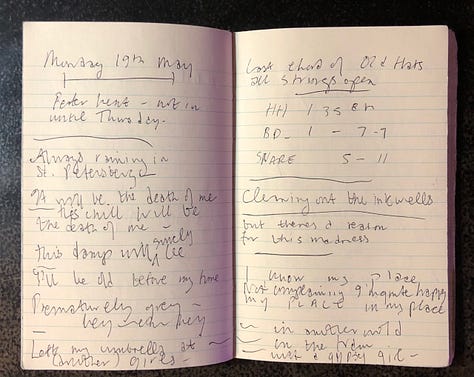 Monday 19th May
Peter Kent - not in
until Thursday.
Always raining in
St. Petersberg
IT will be the death of me
this chill will be
the death of me -
this damp will surely be
I'll be old before my time
Prematurely grey -
hey - hey
Left my umbrella at
(another) girls -
Last third of Old Hats
all strings open
HH 1 3 5
BD_ 1 - 7 - 7
SNARE 5 - 11
Cleaning out the inkwells
but there's a reason
for this madness
I know my place
Not complaining happy
my PLACE in my place
in another world
on the
with a gypsy girl -